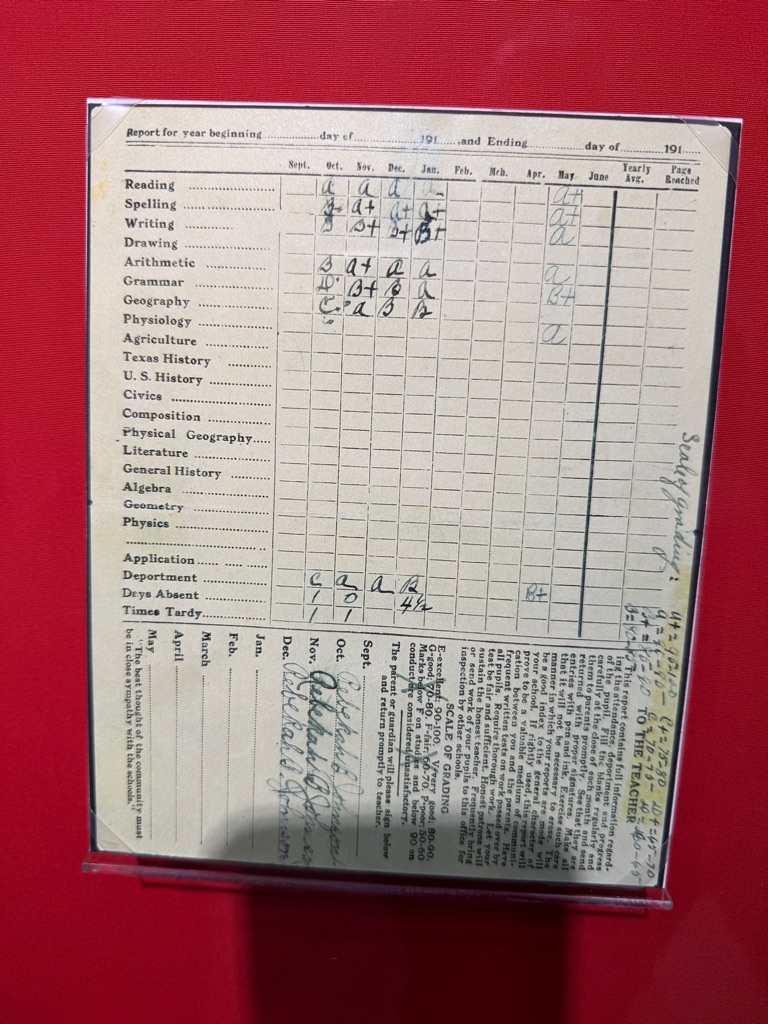 Report for year beginning ............day of ............191.... ,and Ending ............day of ............191....
Sept. Oct. Nov. Dec. Jan. Feb. Mch. Apr. May June Yearly Avg. Page Reached
Reading a a a a- a+
Spelling a+ a+ a+ a+
Writing B B+ B+ B+ a
Drawing
Arithmetic B a+ a a a
Grammar B+ B a B+
Geography C a B B
Physiology a
Agriculture
Texas History
U. S. History
Civics
Composition
Physical Geography
Literature
General History
Algebra
Geometry
Physics
Application
Deportment C a a B B+
Days Absent 1 0 4½
Times Tardy 1 1
Scale of grading:
TO THE TEACHER
This report contains full information regarding the attendance, department and progress
of the pupil. Fill the blanks regularly and
carefully at the close of each month and send
them to parents promptly. See that they are
returned with proper signatures. Make all
entries with pen and ink. Exercise such care
that it will not be necessary to erase. The
manner in which your reports are made will
be a good index to the general character of
your school. If rightly used this report will
prove to be a valuable medium of communi-
cation between you and the parents. Have
frequent written tests on work passed over by
all pupils. Require thorough work. Let your
test be fair and sufficient. Honest patrons will
sustain the honest teacher. Frequently bring
or send work of your pupils to this office for
inspection by other schools.
SCALE OF GRADING
E-excellent; 90-100. V-very good; 80-90.
G-good; 70-80. F-fair, 60-70. P-poor; 50-60
Marks below F on studies and below 90 on
conduct are considered unsatisfactory.
The parent or guardian will please sign below
and return promptly to teacher.
Sept.
Oct. Rebekah B Johnson
Nov. Rebekah B Johnson
Dec. Rebekah B Johnson
Jan.
Feb.
March
April
May
"The best thought of the community must
be in close sympathy with the schools."